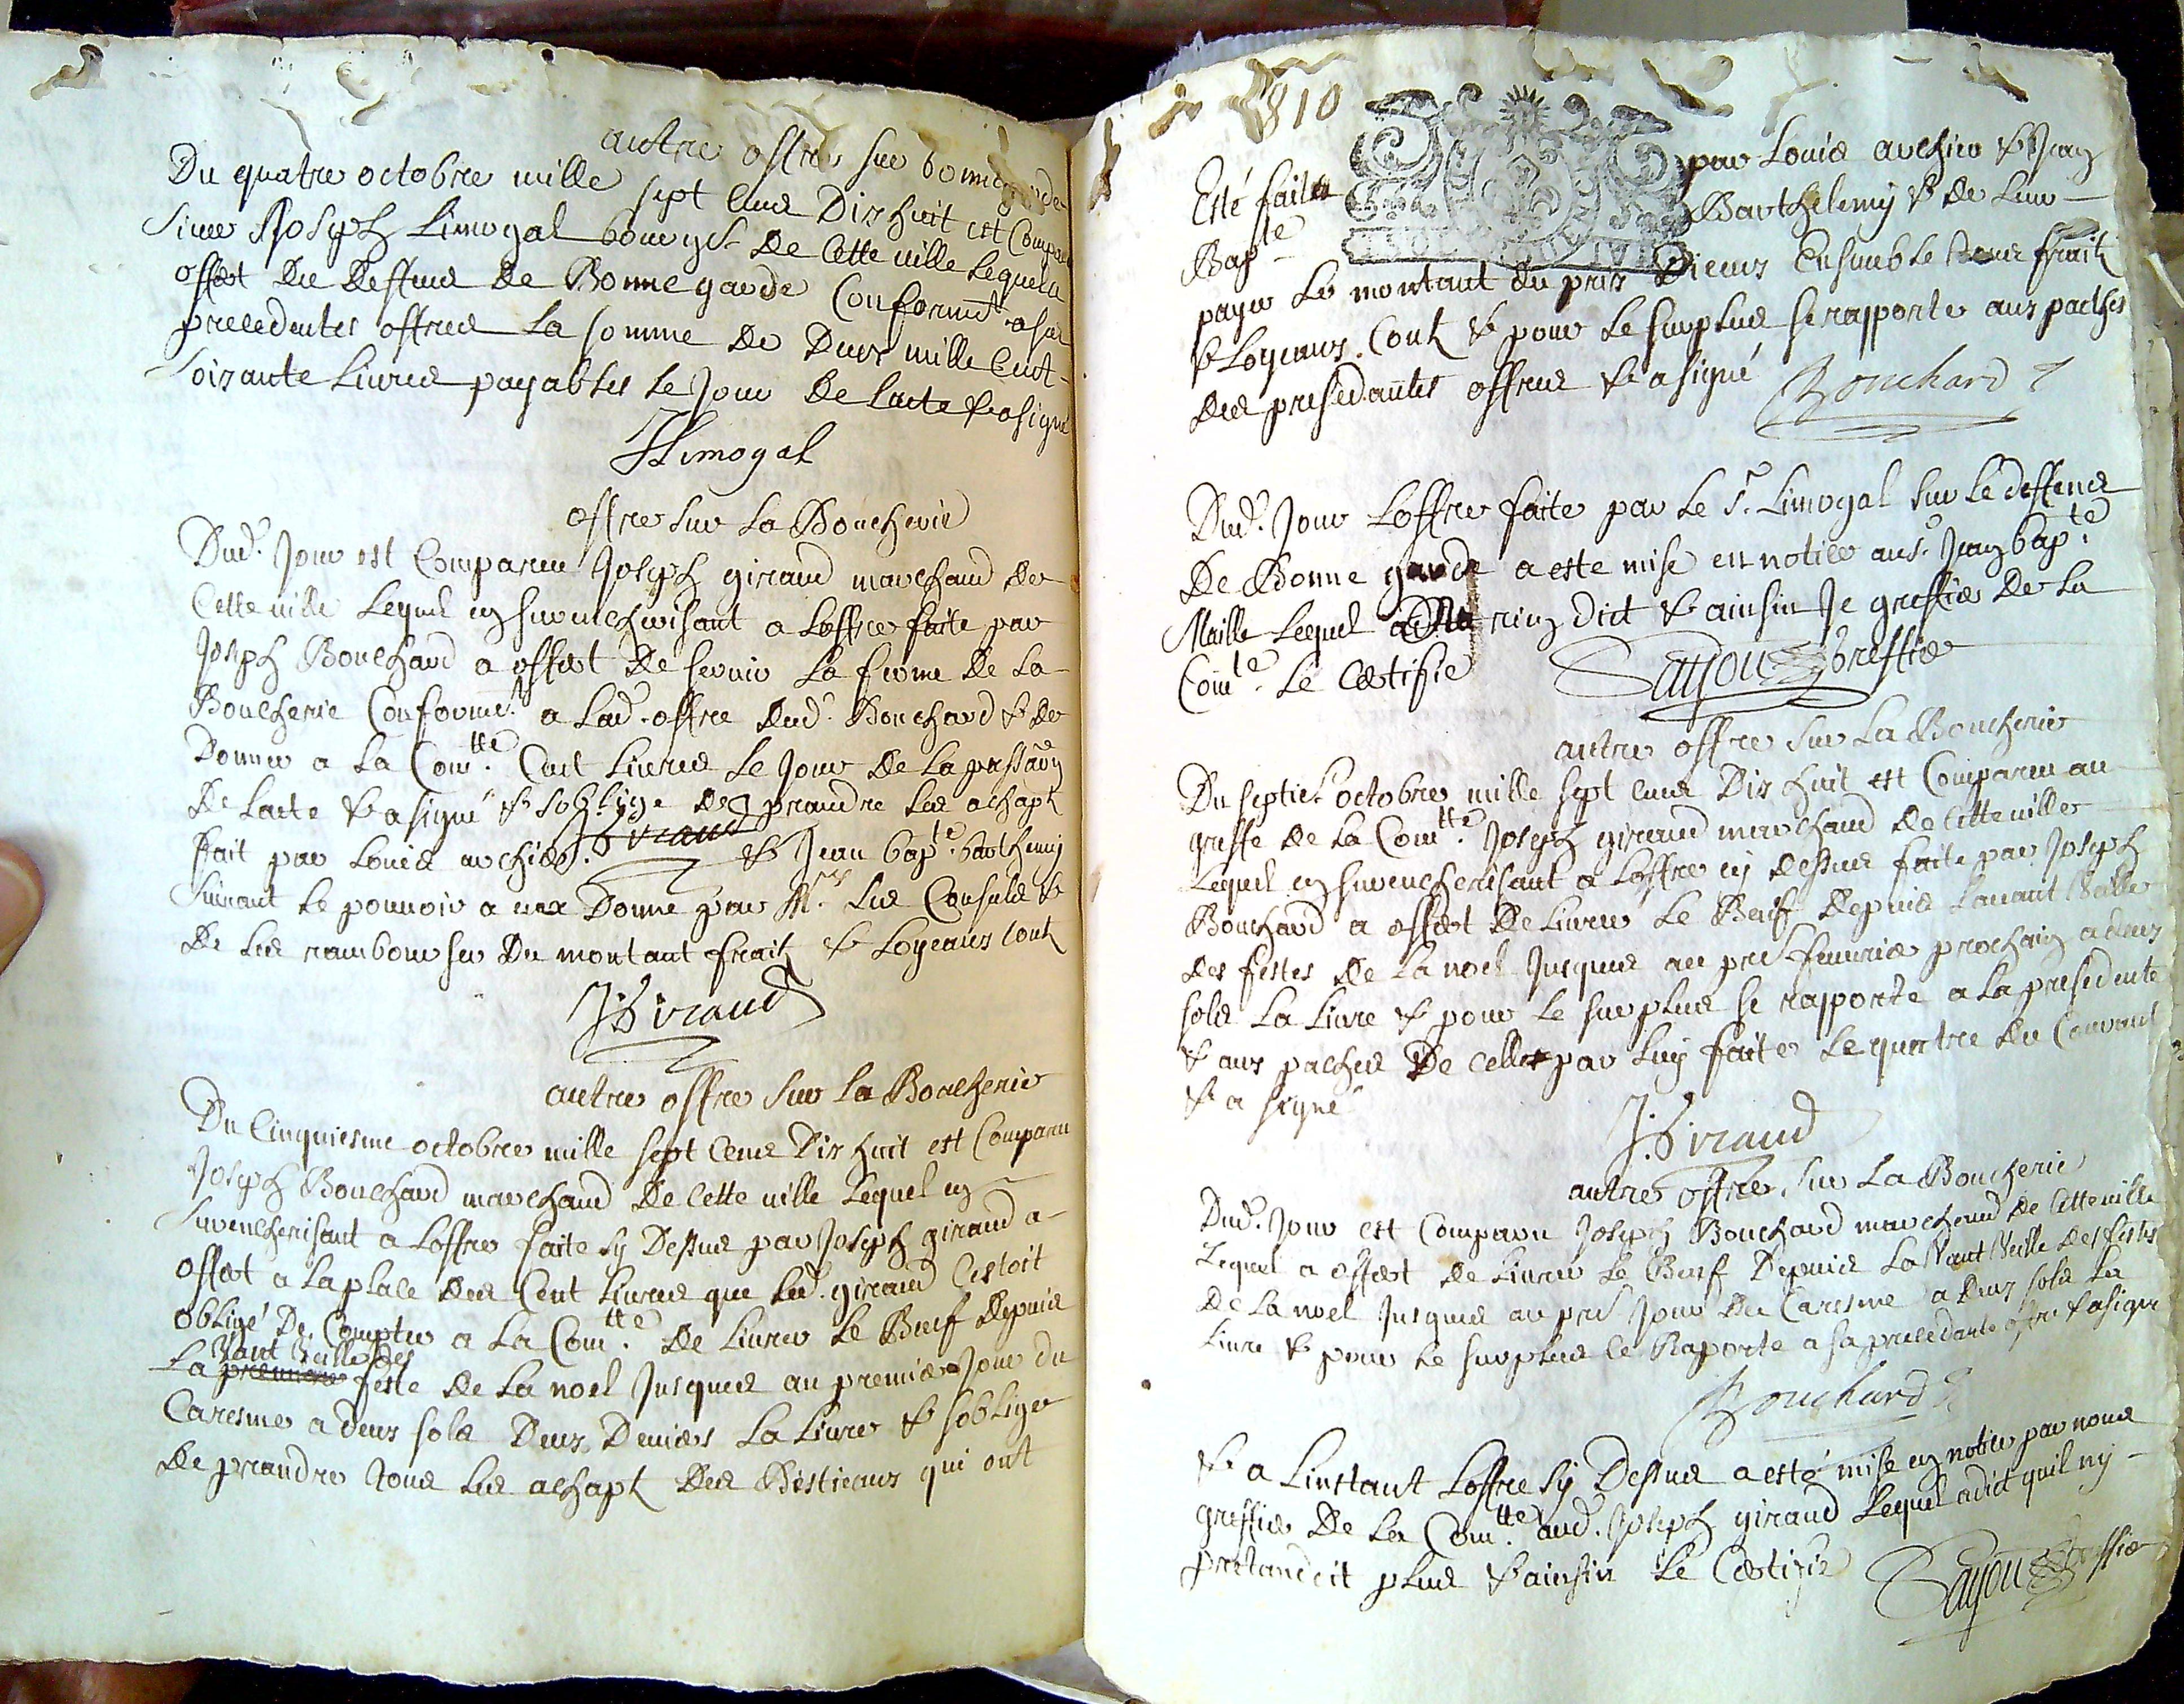 autre offre sur bonnegarde
Du quatre octobre mille sept cens Dix huit est Comparu
sieur Joseph Limogal bourgs. De Cette ville Lequel a
offert Du Deffens De Bonnegarde Conformt. a ses
precedentes offres La somme De Deux mille Cent
soixante Livres payables le Jour De Lacte & a signé
JLimogal
offre sur La Boucherie
Dud. Jour est Comparu Joseph giraud marchand De
Cette ville Lequel en surencherisant a Loffre faite par
Joseph Bouchard a offert De servir La ferme De La
Boucherie Conformt. a Lad. offre Dud. Bouchard & De
Donner a La Comtte. Cent Livres Le Jour De La passaon
De Lacte & a signé & soblige De prandre Les achapt
JGiraud
fait par Louis archier & Jean bapte. barthemy
suivant Le pouvoir a eux Donné par Mrs. Les Consuls &
De Les rambourser Du montant fraix & Loyeaux Couts
JGiraud
autre offre sur La Boucherie
Du Cinquiesme octobre mille sept Cens Dix huit est Comparu
Joseph Bouchard marchand De Cette ville Lequel en
surencherisant a Loffre faite sy Dessus par Joseph giraud a
offert a La place Des Cent Livres que Led. giraud Cestoit
obligé De Compter a La Comtte. De Livrer Le Beuf Depuis
Lavant veille des
La premiere feste De La noel Jusques au premier Jour du
Caresme a deux sols Deux Deniers La Livre & soblige
De prandre Tous Les achapt Des Bestieaux qui ont
810
Esté faits par Louis archier & Jean
Bapte Barthelemy & De Leur
payer Le montant du prix Dieux Ensemble Tous fraix
& Loyeaux Couts & pour Le surplus se rapporte aux paches
Des presedantes offres & a signé Bouchard
Dud. Jour Loffre faite par Le Sr. Limogal sur Le deffens
De Bonne garde a esté mise en notice au Sr. Jean bapte.
Maille Lequel a rien Dit & ainsin Je greffier De La
Comte. Le Certifie Sauson Greffier
autre offre sur La Boucherie
Du septie. octobre mille sept cens Dix huit est Comparu au
greffe De La Comtte. Joseph giraud marchand De Cette ville
Lequel en surencherisant a Loffre cy Dessus faite par Joseph
Bouchard a offert De Livrer Le Beuf Depuis Lavant Veille
Des festes De La noel Jusques au pre. fevrier prochain a deux
sols La Livre & pour Le surplus se rapporte a La presedente
& aux paches De celle par Luy faite Le quatre du Courant
& a signé
J. Giraud
autre offre, sur La Boucherie
Dud. Jour est Comparu Joseph Bouchard marchand De Cette ville
Lequel a offert De Livrer Le Beuf Depuis La Vant Veille Des festes
De La noel Jusques au pre. Jour Du Caresme a Deux sols La
Livre & pour Le surplus Ce Raporte a sa precedante offre & a signé
Bouchard
& a Linstant Loffre sy Dessus a esté mise en notice par nous
greffier De La Comtte. aud. Joseph giraud Lequel a dit quil ny
pretandoit plus & ainsin Le Certifie Sauson Greffier